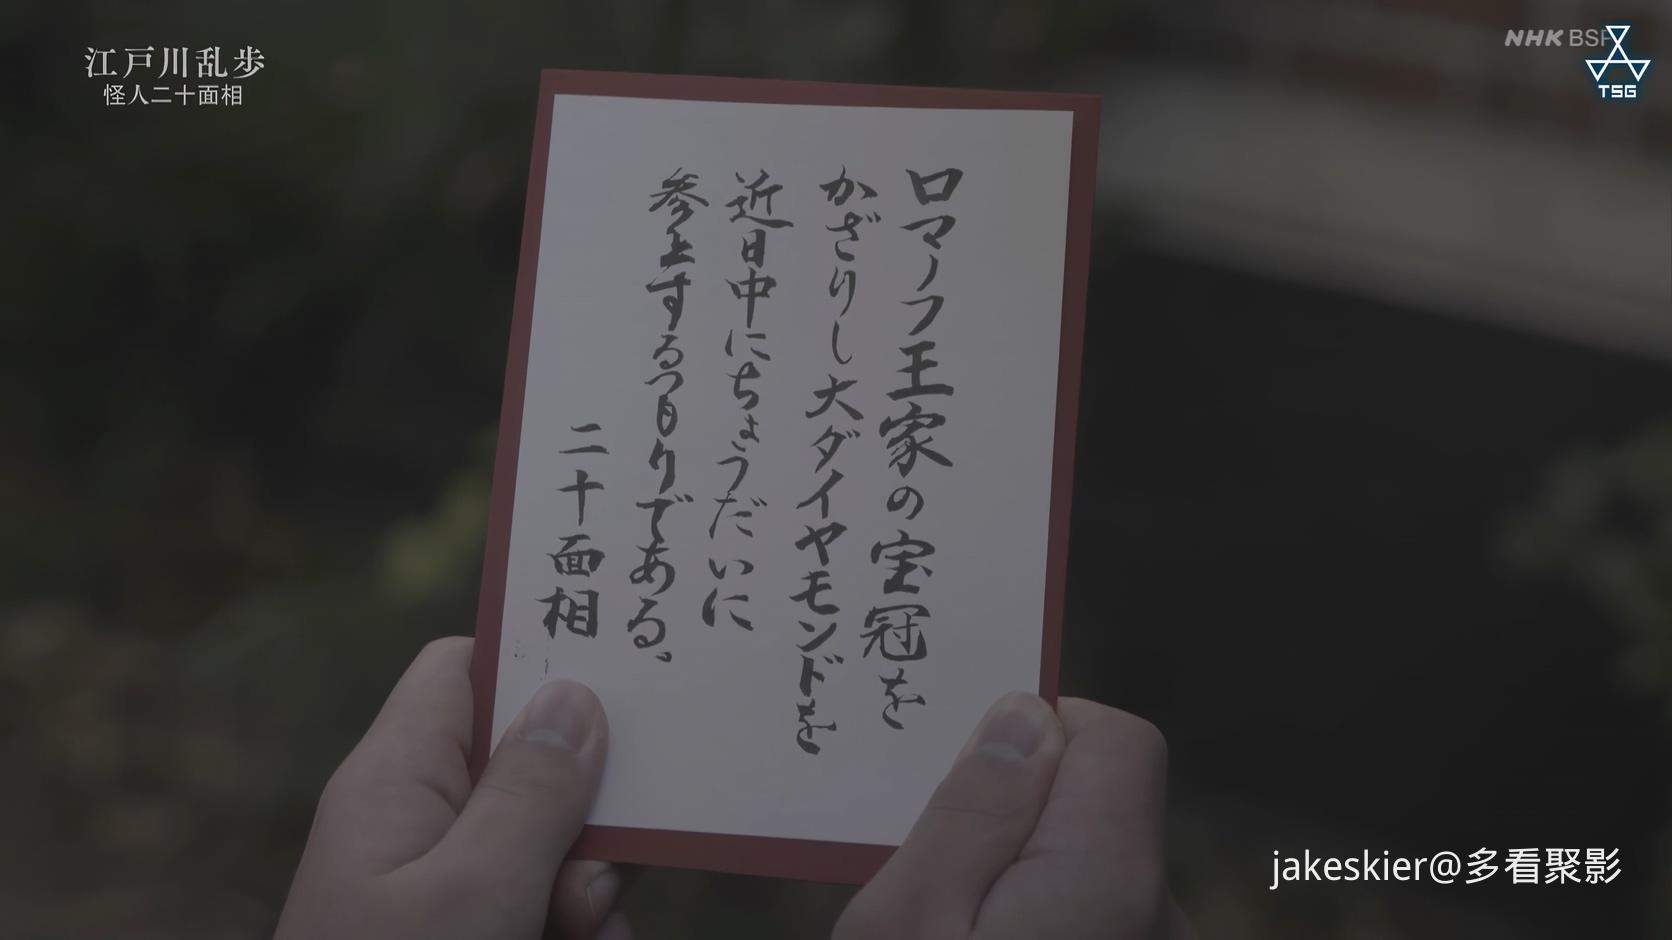 江戸川乱歩
怪人二十面相
NHK BSP
TSG
ロマノフ王家の宝冠を
かざりし大ダイヤモンドを
近日中にちょうだいに
参上するつもりである。
二十面相
jakeskier@多看聚影